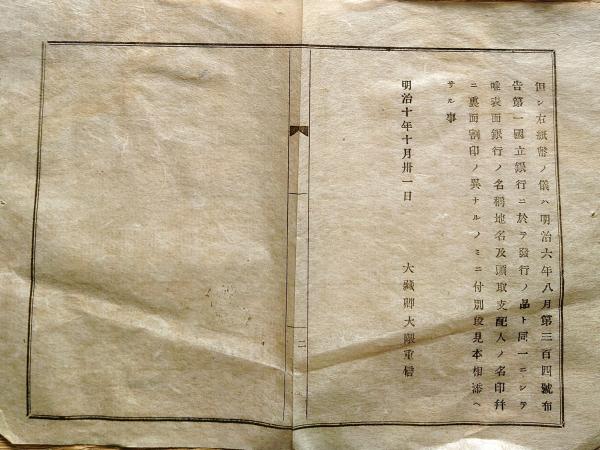 但シ右紙幣ノ儀ハ明治六年八月第三百四號布
告第一國立銀行ニ於テ發行ノ品ト同一ニシテ
唯表面銀行ノ名稱地名及頭取支配人ノ名印幷
ニ裏面割印ノ異ナルノミニ付別段見本相添ヘ
サル事
明治十年十月卅一日
大藏卿大隈重信
二